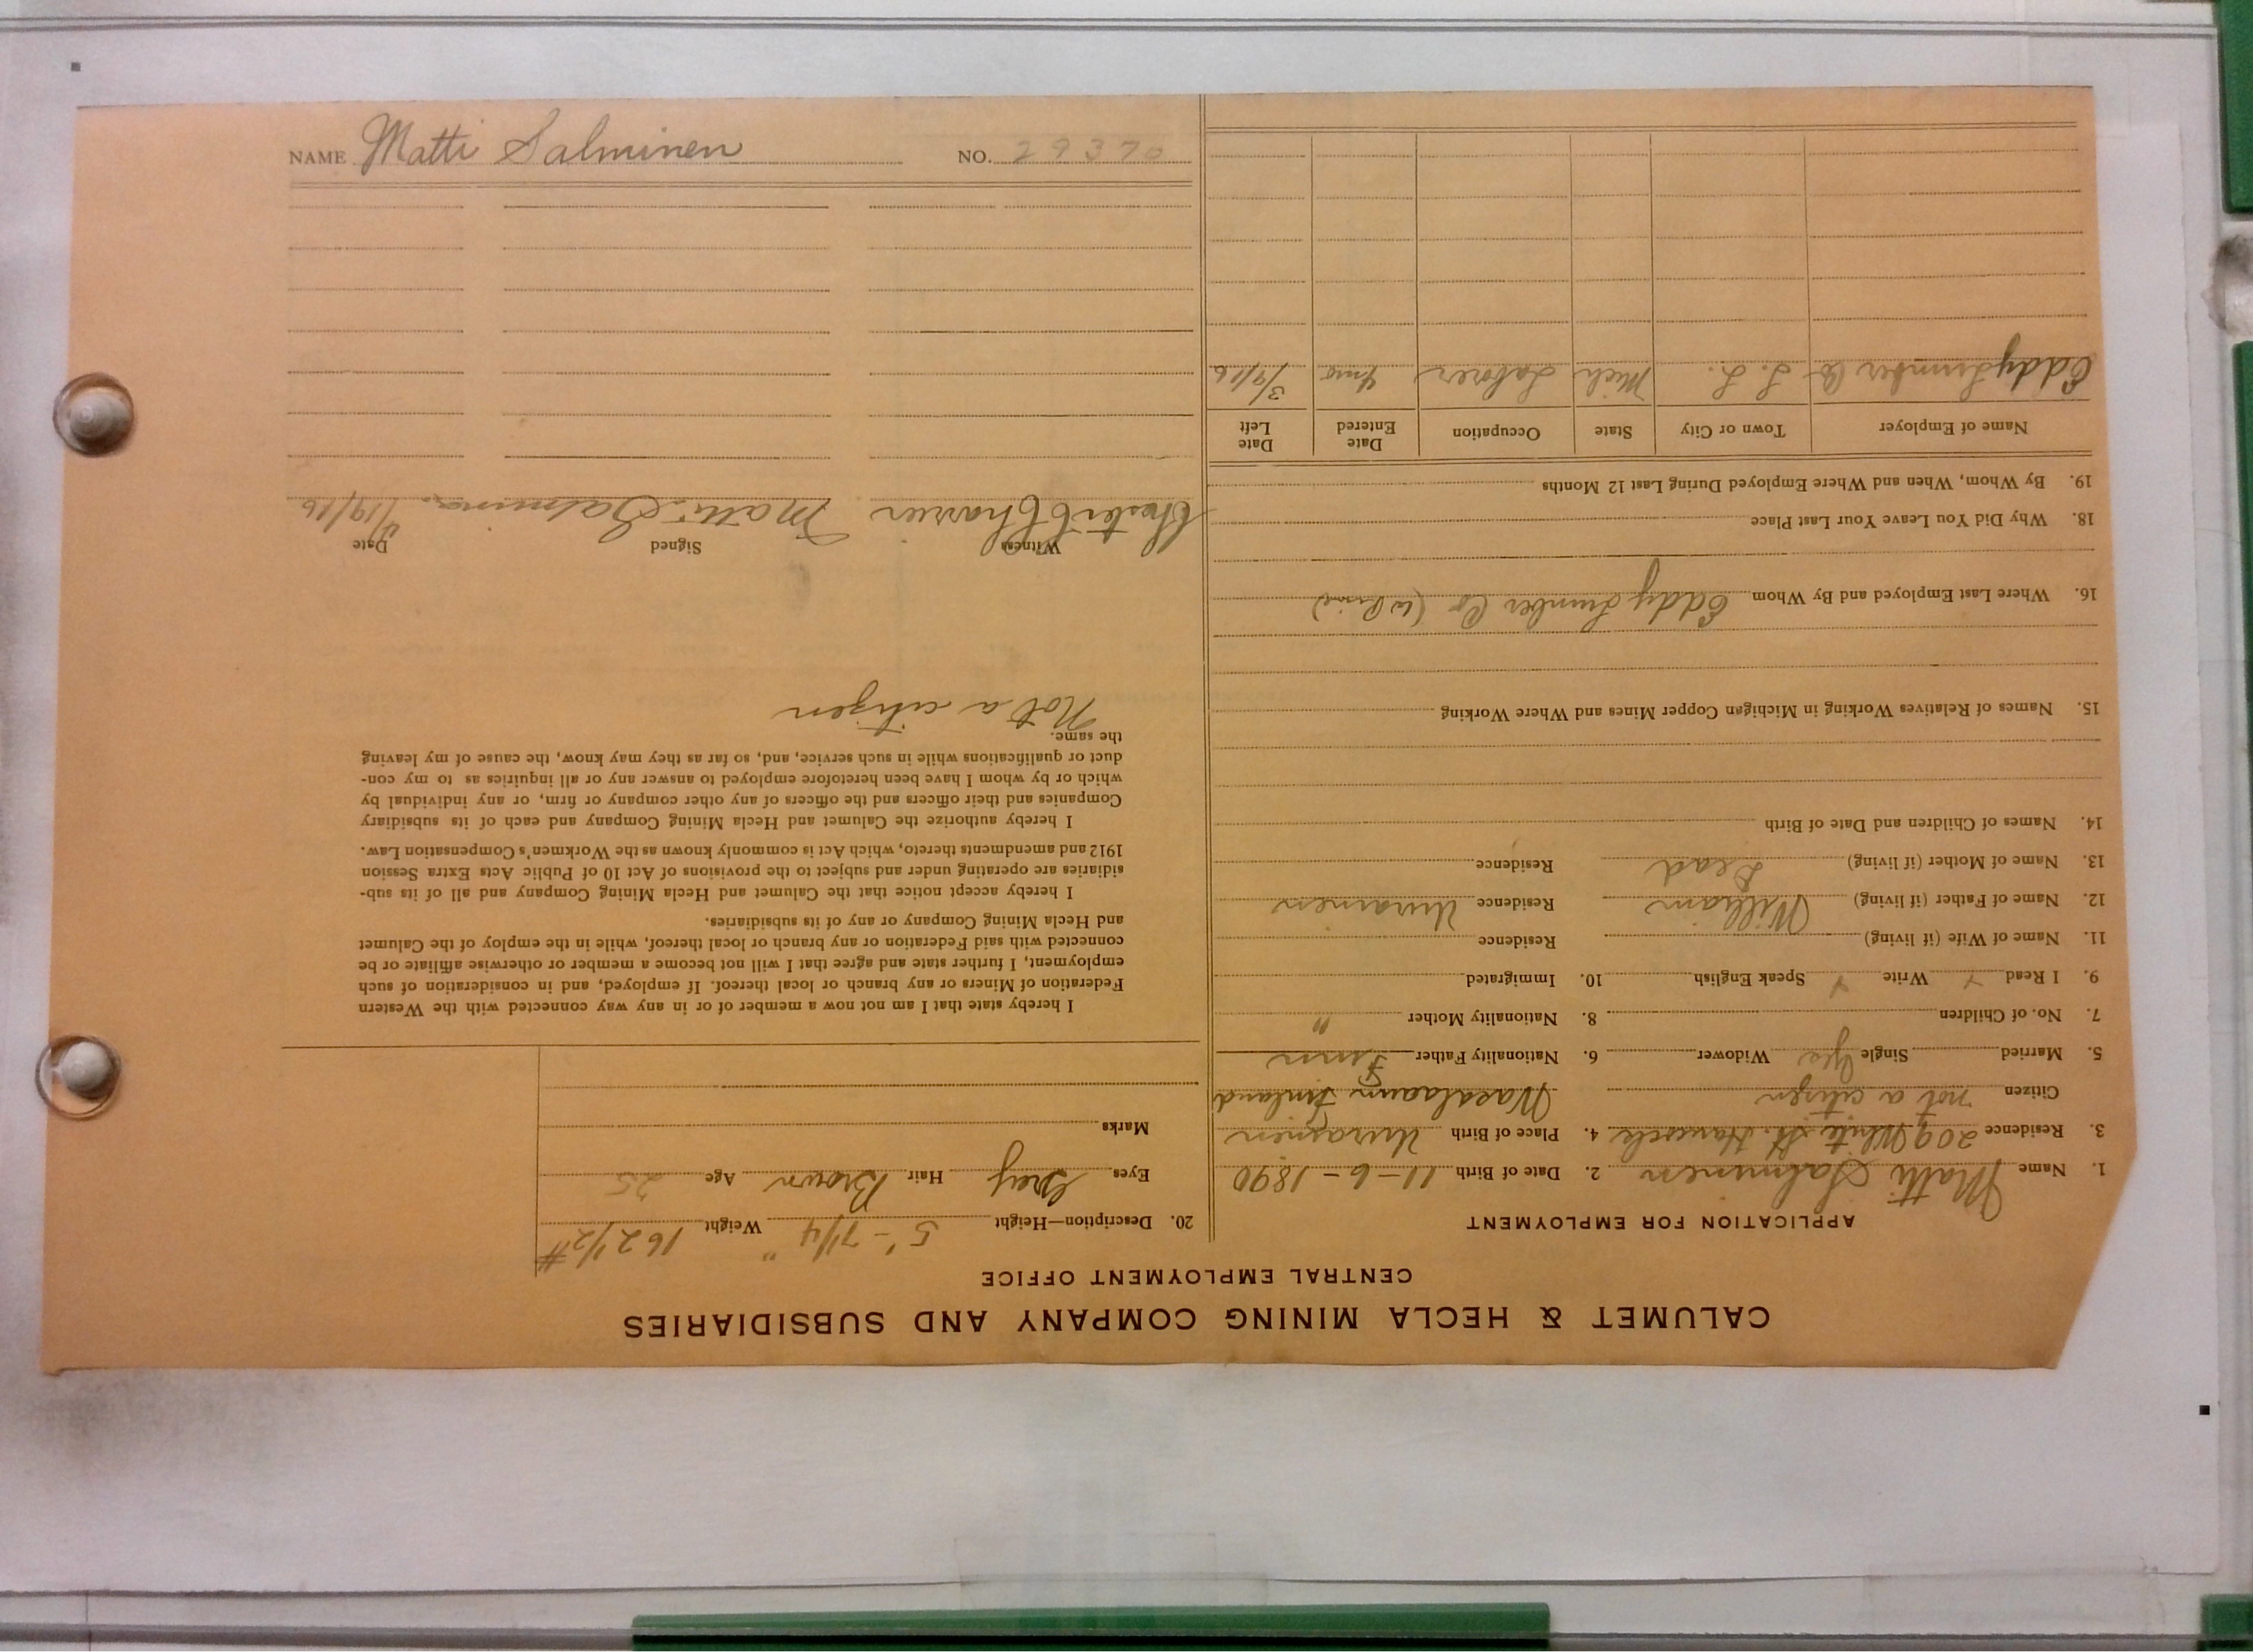 NAME Matti Salminen NO. 29370
CALUMET & HECLA MINING COMPANY AND SUBSIDIARIES
CENTRAL EMPLOYMENT OFFICE
APPLICATION FOR EMPLOYMENT
1. Name Matti Salminen 2. Date of Birth 11-6-1890
3. Residence 209 White St. 4. Place of Birth
Citizen not a citizen Finland
5. Married Single Yes Widower 6. Nationality Father Finn
7. No. of Children 8. Nationality Mother "
9. I Read Write Speak English 10. Immigrated
11. Name of Wife (if living) Residence
12. Name of Father (if living) William Residence
13. Name of Mother (if living) Dead Residence
14. Names of Children and Date of Birth
15. Names of Relatives Working in Michigan Copper Mines and Where Working
16. Where Last Employed and By Whom Eddy Lumber Co
18. Why Did You Leave Your Last Place
19. By Whom, When and Where Employed During Last 12 Months
Name of Employer Town or City State Occupation Date Entered Date Left
Eddy Lumber Co L. L. Mich Laborer 4 mo 3/9/16
20. Description—Height 5'-7 1/4" Weight 162 1/2 #
Eyes Grey Hair Brown Age 25
Marks
I hereby state that I am not now a member of or in any way connected with the Western
Federation of Miners or any branch or local thereof. If employed, and in consideration of such
employment, I further state and agree that I will not become a member or otherwise affiliate or be
connected with said Federation or any branch or local thereof, while in the employ of the Calumet
and Hecla Mining Company or any of its subsidiaries.
I hereby accept notice that the Calumet and Hecla Mining Company and all of its sub-
sidiaries are operating under and subject to the provisions of Act 10 of Public Acts Extra Session
1912 and amendments thereto, which Act is commonly known as the Workmen's Compensation Law.
I hereby authorize the Calumet and Hecla Mining Company and each of its subsidiary
Companies and their officers and the officers of any other company or firm, or any individual by
which or by whom I have been heretofore employed to answer any or all inquiries as to my con-
duct or qualifications while in such service, and, so far as they may know, the cause of my leaving
the same.
Not a citizen
Witness Signed Date
Matti 4/19/16